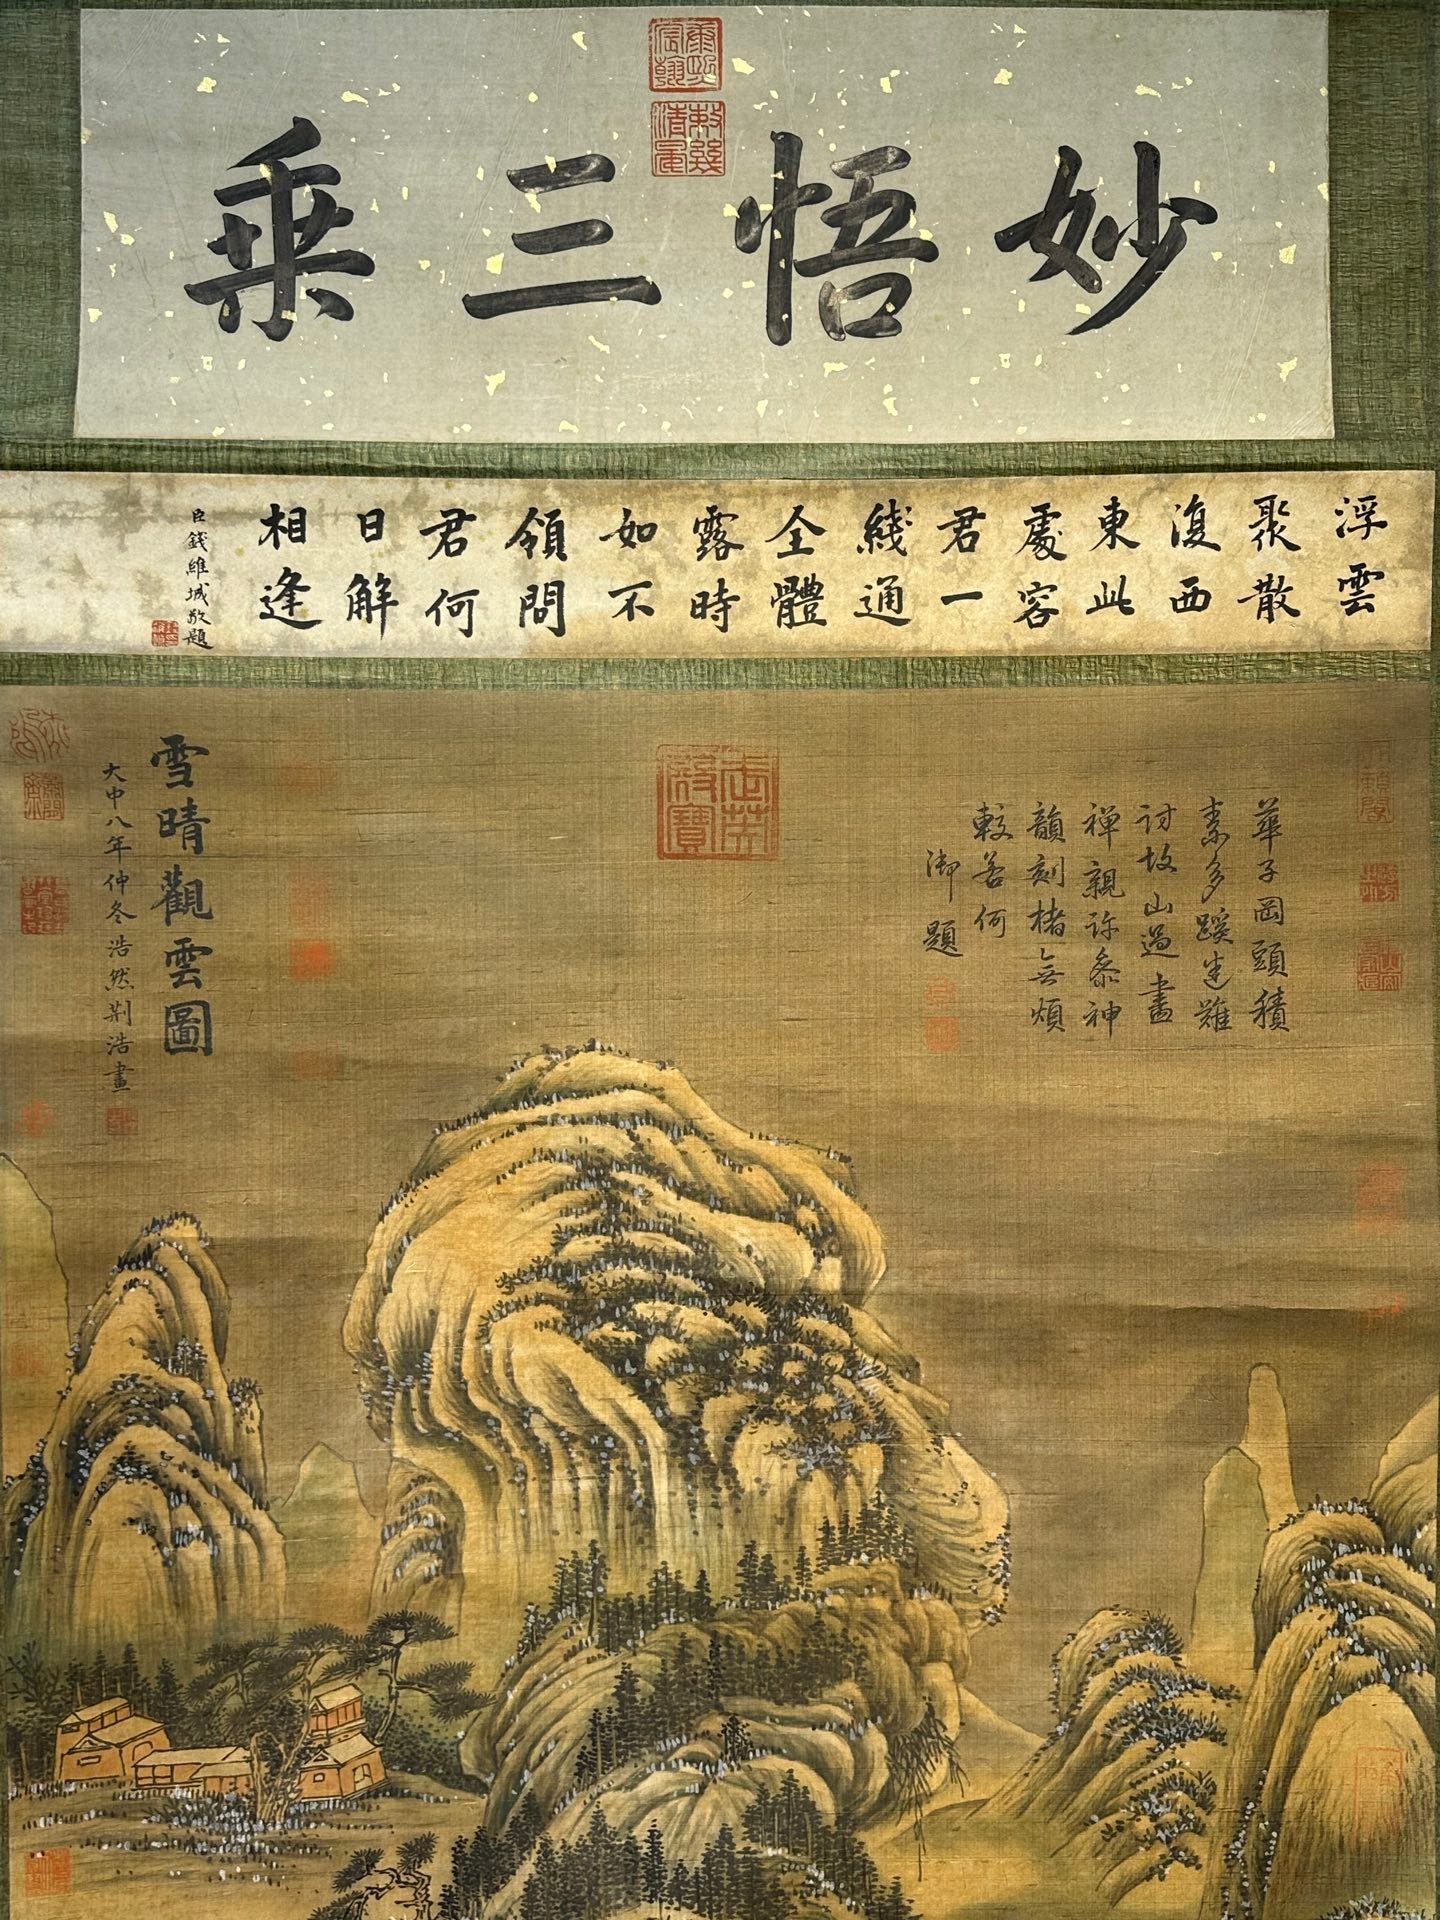 妙悟三乗
浮雲
聚散
復西
東此
處容
君一
綫通
全體
露時
如不
領問
君何
日解
相逢
臣錢維城敬題
華子岡頭積
素多蹊迷難
討故山過畫
禪親許參神
韻刻楮無煩
較若何
御題
雪晴觀雲圖
大中八年仲冬浩然荆浩畫